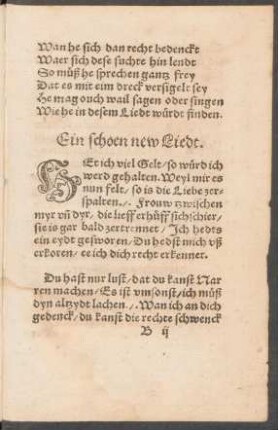 Wan he sich dan recht bedenckt
Waer sich dese suchte hin lendt
So můß he sprechen gantz frey
Dat es mit eim dreck versigelt sey
He mag ouch wail sagen oder singen
Wie he in desem Liedt würdt finden.
Ein schoen new Liedt.
HEt ich viel Gelt/so würd ich
werd gehalten. Weyl mir es
nun felt/so is die Liebe zer-
spalten./. Frouw tzwischen
myr vñ dyr/die lieff erhůff sich schier/
sie is gar bald zertrennet/Ich hedts
ein eydt gesworen/Du hedst mich vß
erkoren/ee ich dich recht erkenner.
Du hast nur lust/dat du kanst Nar
ren machen/Es ist vmsonst/ich můß
dyn altzydt lachen./. Wan ich an dich
gedenck/du kanst die rechte schwenck
B ij